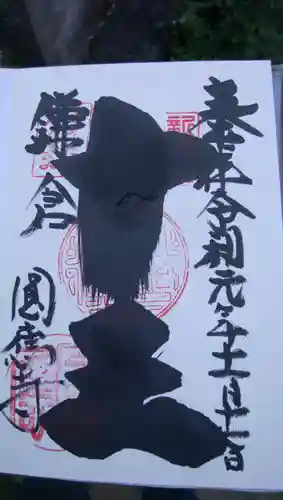 奉拝 令和元年十一月十一日
十王
鎌倉
圓應寺